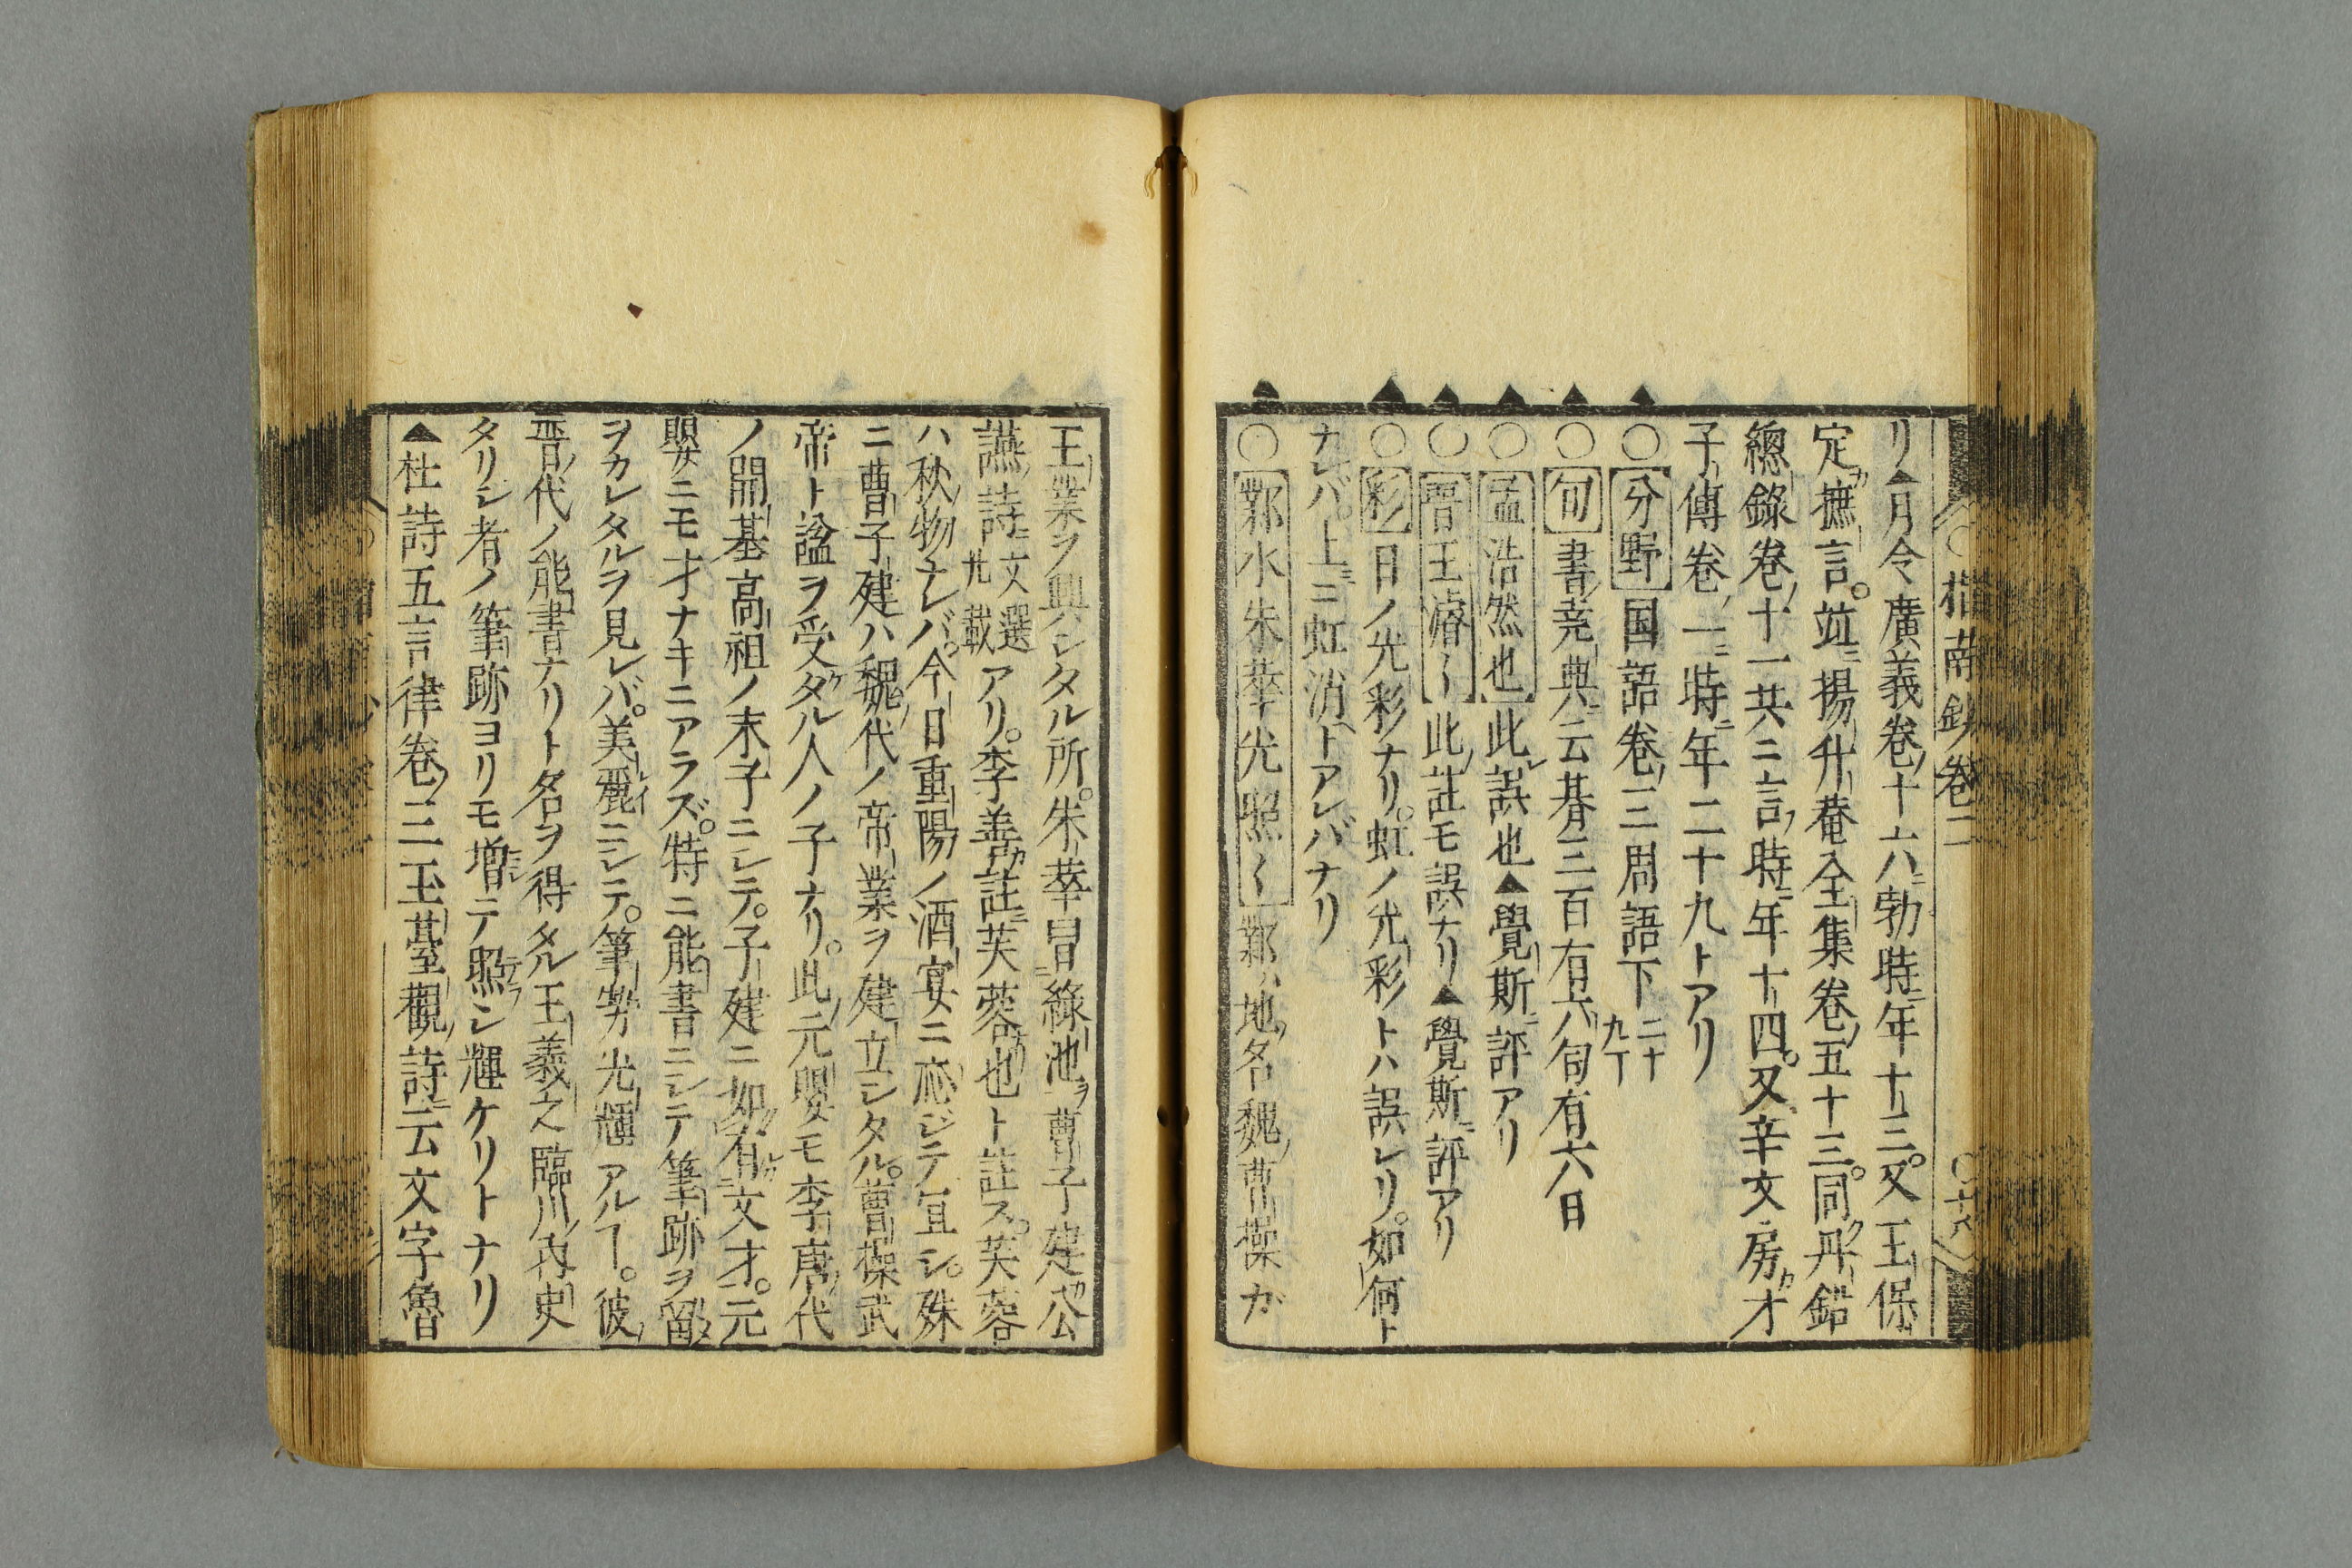 指南鈔卷二 ○十八
リ▲月令廣義卷ノ十六ニ勃時ニ年十三。又王保
定カ摭言。竝ニ揚升菴全集卷ノ五十三。同ク丹鉛
總錄卷ノ十一共ニ言ノ時ニ年十四。又辛文房カ才
子傳卷ノ一ニ時ニ年二十九トアリ
○分野国語卷ノ三周語下二十九丁
○旬書ノ堯典ニ云朞三百有六旬有六日
○孟浩然也此レ誤也▲覺斯ニ評アリ
○晋王濬〱此ノ註モ誤ナリ▲覺斯ニ評アリ
○彩日ノ光彩ナリ。虹ノ光彩トハ誤レリ。如何ト
ナレバ。上ニ虹消ヘトアレバナリ
○鄴水朱華光照〱鄴ハ地ノ名魏ノ曹操ガ
王業ヲ興シタル所。朱華冒綠池ヲ曹子建カ公
讌ノ詩ニ文選九載アリ。李善カ註ニ芙蓉也ト註ス。芙蓉
ハ秋ノ物ナレバ。今日重陽ノ酒宴ニ應ジテ宜シ。殊
ニ曹子建ハ魏ノ代ノ帝業ヲ建立シタル。曹操武
帝ト諡ヲ受ケタル人ノ子ナリ。此ノ元嬰モ李唐ノ代
ノ開基高祖ノ末子ニシテ。子建ニ如ク有ル文才。元
嬰ニモ才ナキニアラズ。特ニ能書ニシテ筆跡ヲ留メ
ヲカレタルヲ見レバ。美麗ニシテ。筆勢光輝アルヿ。彼ノ
晋ノ代ノ能書ナリト名ヲ得タル王羲之臨川ノ内史
タリシ者ノ筆跡ヨリモ増シテ照シ輝ケリトナリ
▲杜詩五言律卷ノ三玉臺觀ノ詩ニ云文字魯